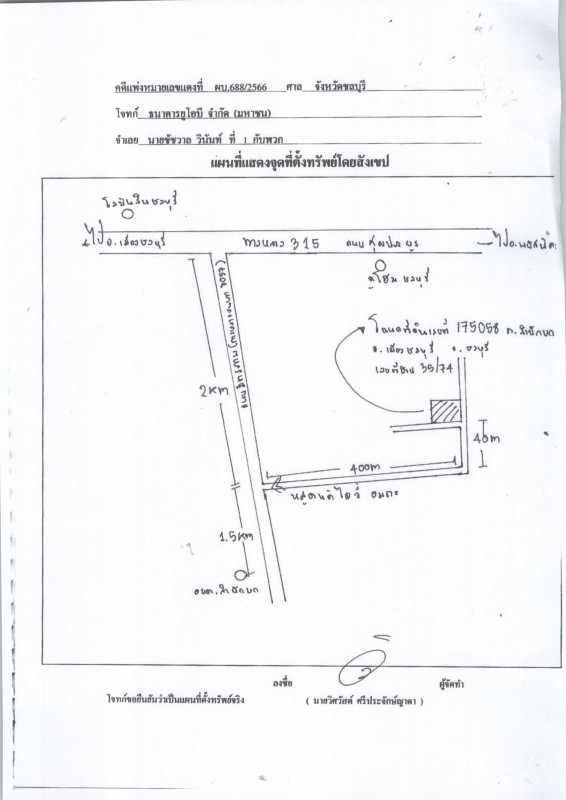 คดีแพ่งหมายเลขแดงที่ ผบ.688/2566 ศาล จังหวัดชลบุรี
โจทก์ ธนาคารยูโอบี จำกัด (มหาชน)
จำเลย นายชัชวาล วินันท์ ที่ 1 กับพวก
แผนที่แสดงจุดที่ตั้งทรัพย์โดยสังเขป
โรบินสันชลบุรี
ไป อ.เมืองชลบุรี
ทางหลวง 315
ถนน
ไป อ.พนัสนิคม
ดูโฮม ชลบุรี
โฉนดที่ดินเลขที่ 175058 ต.สำนักบก
อ.เมืองชลบุรี จ.ชลบุรี
เลขที่บ้าน 39/74
2KM
40m
400m
1.5KM
อบต.สำนักบก
ลงชื่อ ผู้จัดทำ
โจทก์ขอยืนยันว่าเป็นแผนที่ตั้งทรัพย์จริง ( นายวิศวัสต์ ศรีประจักษ์ญาดา )